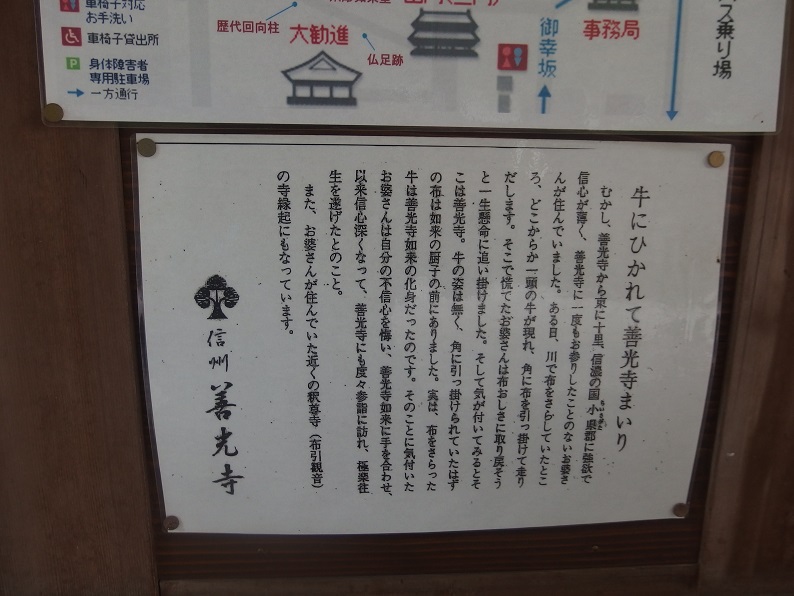 車椅子対応
お手洗い
車椅子貸出所
P 身体障害者
専用駐車場
一方通行
歴代回向柱
大勧進
仏足跡
御幸坂
事務局
バス乗り場
牛にひかれて善光寺まいり
むかし、善光寺から東に十里、信濃の国 小県郡に強欲で
信心が薄く、善光寺に一度もお参りしたことのないお婆さ
んが住んでいました。ある日、川で布をさらしていたとこ
ろ、どこからか一頭の牛が現れ、角に布を引っ掛けて走り
だします。そこで慌てたお婆さんは布おしさに取り戻そう
と一生懸命に追い掛けました。そして気が付いてみるとそ
こは善光寺。牛の姿は無く、角に引っ掛けられていたはず
の布は如来の厨子の前にありました。実は、布をさらった
牛は善光寺如来の化身だったのです。そのことに気付いた
お婆さんは自分の不信心を悔い、善光寺如来に手を合わせ、
以来信心深くなって、善光寺にも度々参詣に訪れ、極楽往
生を遂げたとのこと。
また、お婆さんが住んでいた近くの釈尊寺（布引観音）
の寺縁起にもなっています。
信州 善光寺